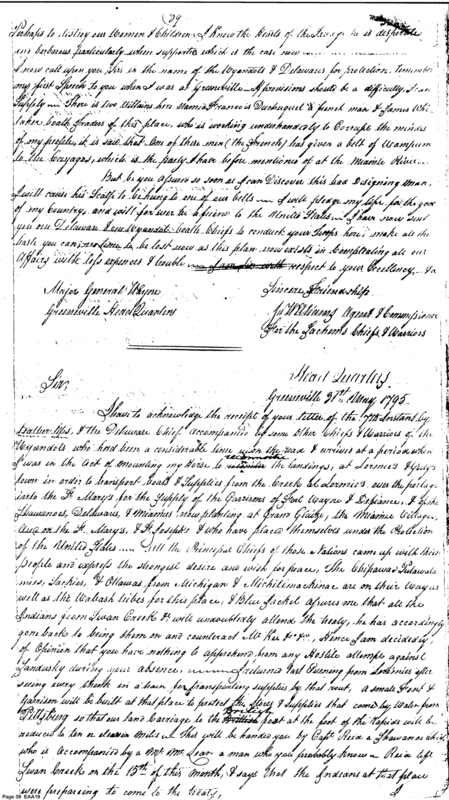 39
Perhaps to distroy our Women & Children I know the Hearts of the Savage he is desperate
and barbarous particularly when supported which is the case now
I now call upon you, Sirs in the name of the Wyandots & Delawares for protection. Remember
my first Speech to you when I was at Greenville. If provisions should be a difficulty, I can
Supply. There is two Villains here Named Francis Duchuquet a french man & James Whi
taker boath Traders of this place, who is working underhandedly to Corrupt the mindes
of my people, it is said that one of these men (the French) has given a belt of Wampum
to the Cayugas, which is the party I have before mentioned of at the Miamie River
But be you assured so soon as I can Discover this bad Designing man,
I will cause his Scalp to be hung to one of our belts I will pledge my life, for the good
of my Country, and will for ever be a friend to the United States I have now Sent
you one Delaware & one Wyandot boath Chiefs to conduct your Troops here: make all the
haste you can, no time to be lost now as this plan now exists in Compleating all our
Affairs with less expences & trouble respect to your Excellency
Major General Wayne
Greenville Head Quarters
Sincere Friendship
Williams Agent & Commissioner
For the Sachems Chiefs & Warriors
Head Quarters
Greenville 31st May 1795
Sir,
I have to acknowledge the receipt of your letter of the 7th Instant by
& the Delaware Chief accompanied by some other Chiefs & Warriors of the
Wyandots who had been a considerable time upon the road & arrived at a period when
I was in the Act of mounting my Horse to the landings, at Lormies &
town in order to transport boats & Supplies from the Creek at Lormies over the portage
into the St Mary's for the Supply of the Garrisons of Fort Wayne & Defiance, & of the
Shawonoes, Delawares, & Miamies now planting at Grand Glaize, the Miamie Villages,
and on the St. Mary's, & St. Josephs & who have placed themselves under the Protection
of the United States All the Principal Chiefs of those Nations came up with their
people and express the strongest desire and wish for peace, The Chipawas Putawata
mies, Sackies, & Ottawas from Michigan & Michilimackinac are on their Way as
well as the Wabash tribes for this place, & Blue Jacket assures me that all the
Indians from Swan Creek &c will undoubtedly attend the treaty, he has accordingly
gone back to bring them on and counteract McKee &c &c, Hence I am decidedly
of Opinion that you have nothing to apprehend from any Hostile attempts against
Sandusky during your absence, I returned last Evening from Loromies after
seeing every in a train for transporting supplies by that rout, a small Fort &
Garrison will be built at that place to protect the Stores & Supplies that come by water from
Pittsburg so that our land Carriage to the boat at the foot of the Rapids will be
reduced to ten or eleven miles This will be handed you by Capt Reid a Shawanoe Chief
who is accompanied by a Mr. McLean a man who you probably know Reid left
Swan Creek on the 15th of this month, & says that the Indians at that place
were preparing to come to the treaty,
Page 39 EAA19